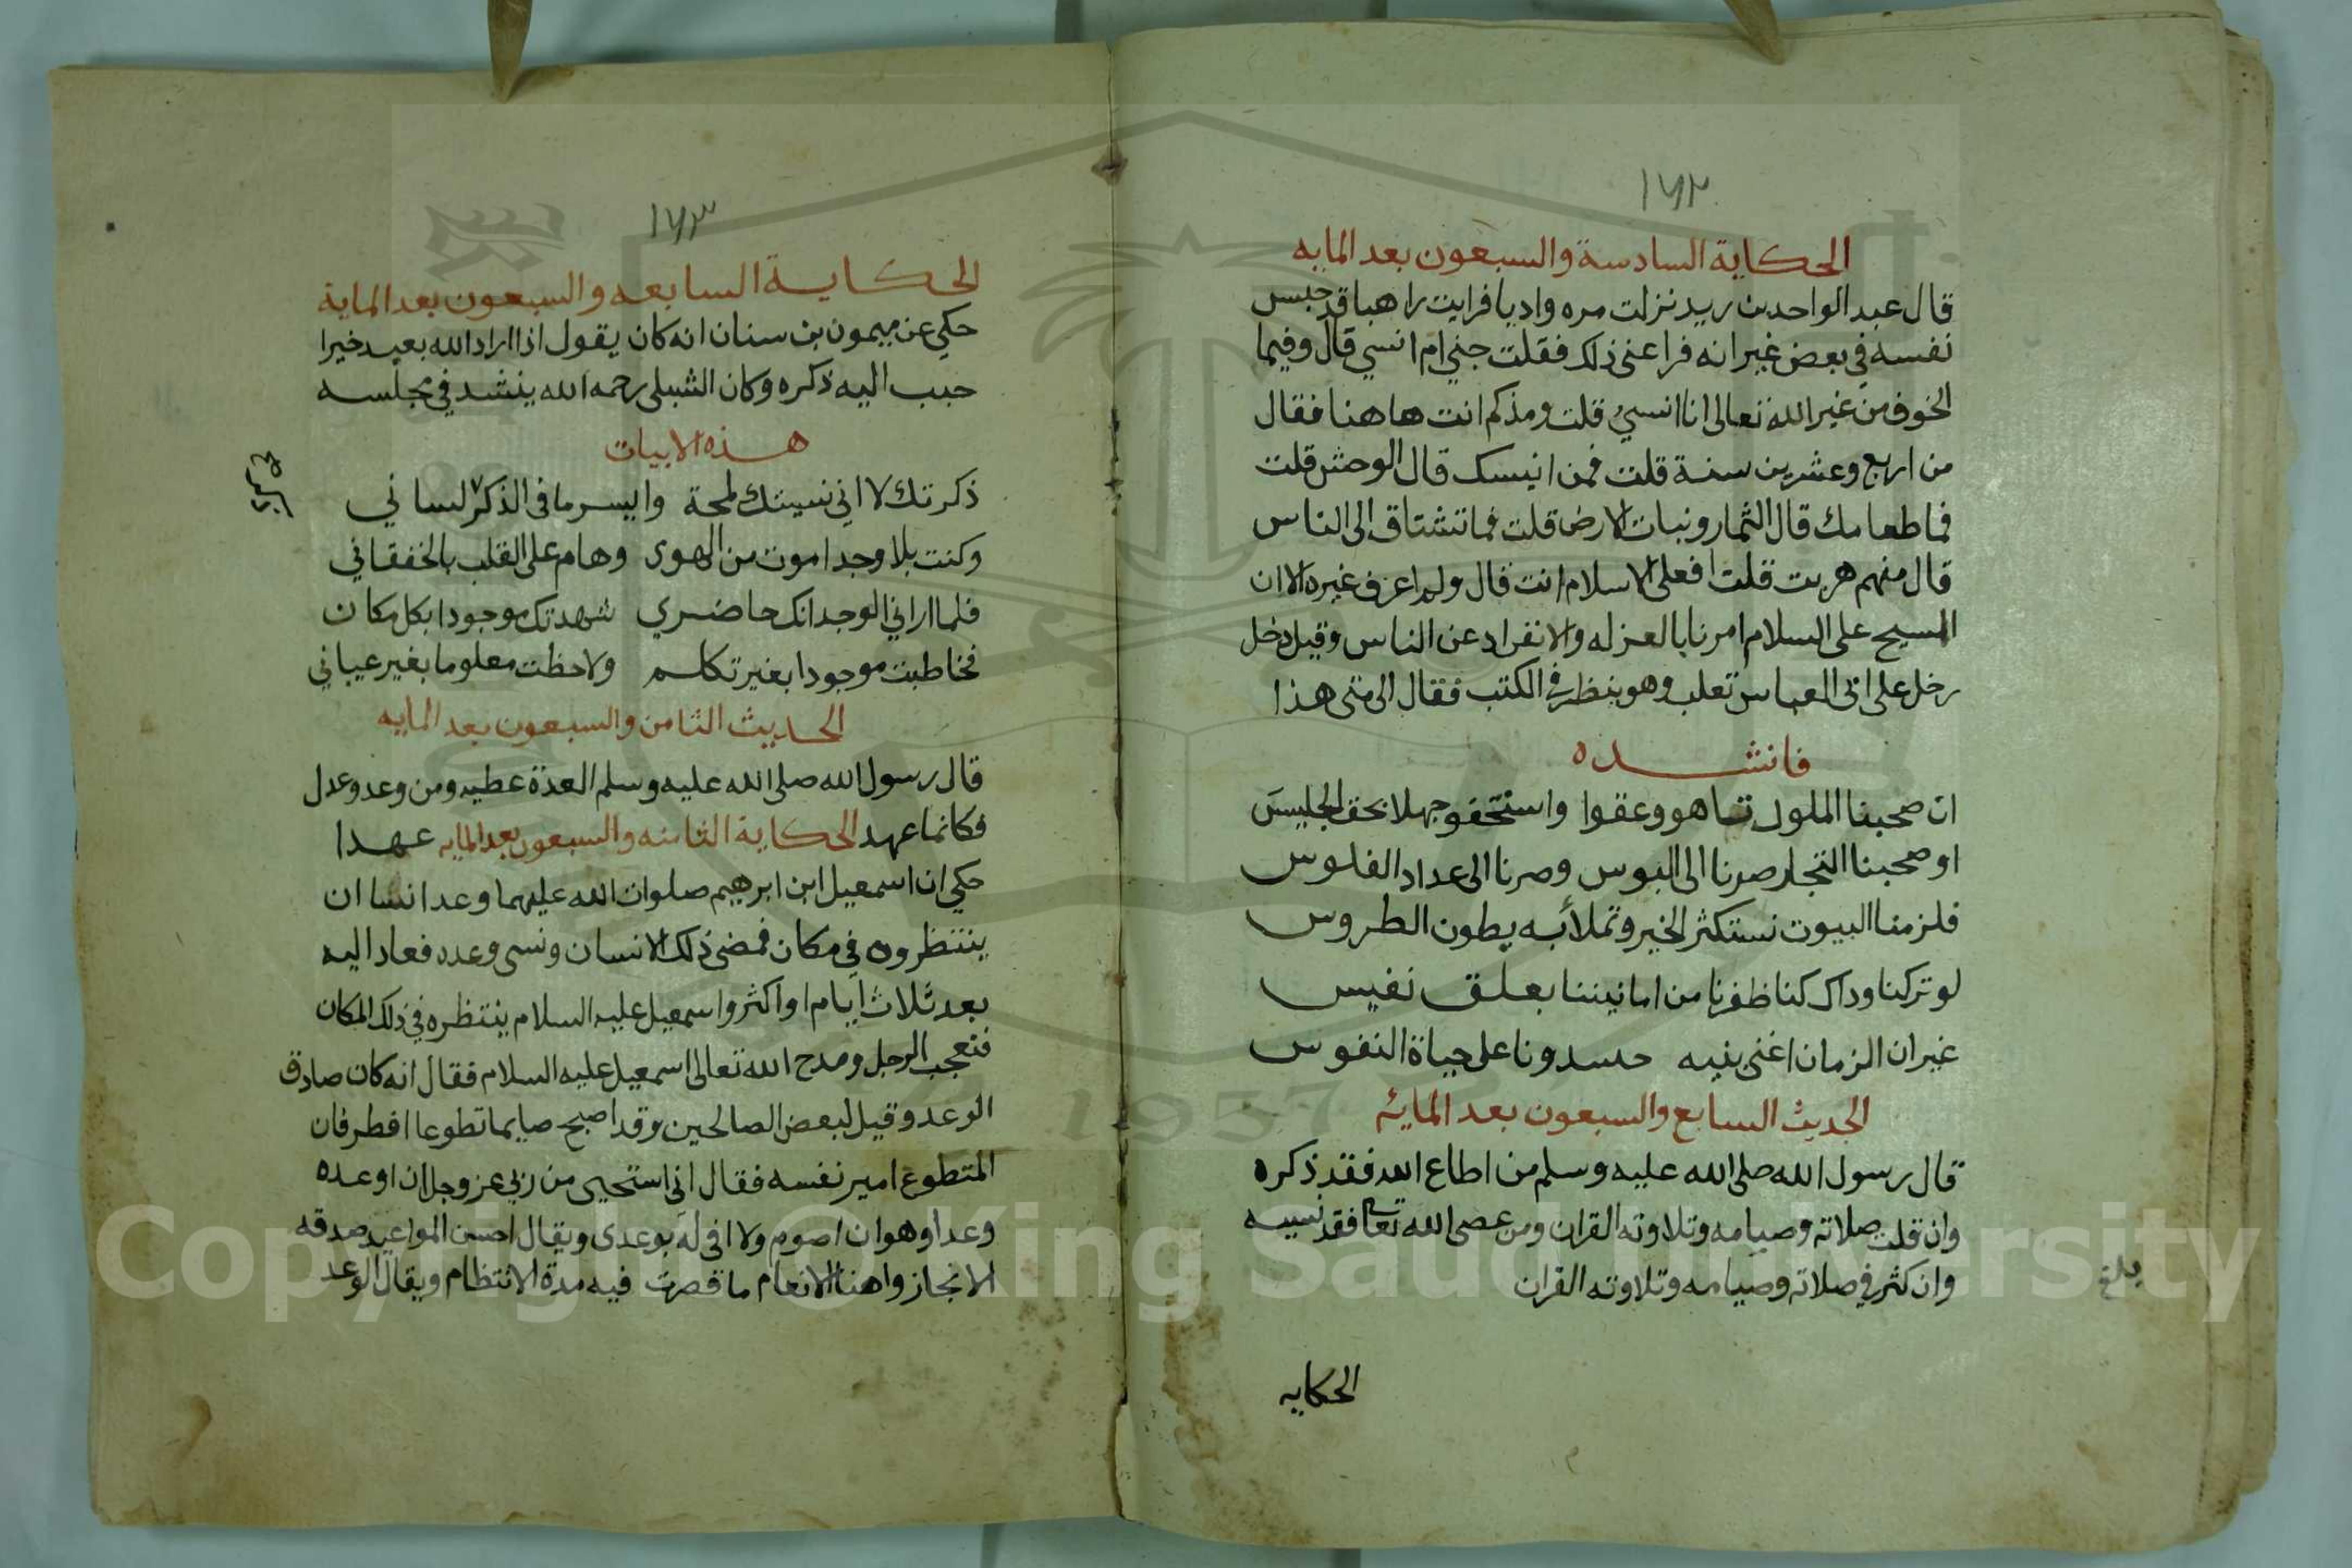 ١٧٢
الحكاية السادسة والسبعون بعد المايه
قال عبد الواحد بن ريد نزلت مره واديا فرايت راهبا قد حبس
نفسه في بعض غيرانه فراعنى ذلك فقلت جني ام انسي قال وفيما
الخوف من غير الله تعالى انا انسي قلت ومذكم انت هاهنا فقال
من اربع وعشرين سنة قلت فمن انيسك قال الوحش قلت
فما طعامك قال الثمار ونبات الارض قلت فما تشتاق الى الناس
قال منهم هربت قلت افعلى الاسلام انت قال ولم اعرف غيره الا ان
المسيح على السلام امرنا بالعزله والانفراد عن الناس وقيل دخل
رخل على ابى العباس تعلب وهو ينظر في الكتب فقال الى متى هذا
فانشده
ان صحبنا الملوك تاهو وعقوا واستخفو جهلا بحق الجليس
او صحبنا التجار صرنا الى البوس وصرنا الى عداد الفلوس
فلزمنا البيوت نستكثر الخير وتملأ به بطون الطروس
لو تركنا وداك كنا ظفرنا من امانيننا بعلق نفيس
غير ان الزمان اغنى بنيه حسدونا على حياة النفوس
الحديث السابع والسبعون بعد المائه
قال رسول الله صلى الله عليه وسلم من اطاع الله فقد ذكره
وان قلت صلاته وصيامه وتلاوته القران ومن عصى الله تعالى فقد نسيه
وان كثر في صلاته وصيامه وتلاوته القران
بلغ
الحكايه
١٧٣
الحكاية السابعه والسبعون بعد الماية
حكي عن ميمون بن سنان انه كان يقول اذا اراد الله بعبد خيرا
حبب اليه ذكره وكان الشبلى رحمه الله ينشد في مجلسه
هذه الابيات
ذكرتك لا اني نسيتك لمحة وايسر ما فى الذكر لساني
وكنت بلا وجد اموت من الهوى وهام على القلب بالخفقاني
فلما اراني الوجد انك حاضري شهدتك موجودا بكل مكان
فخاطبت موجودا بغير تكلم ولاحظت معلوما بغير عياني
الحديث الثامن والسبعون بعد المايه
قال رسول الله صلى الله عليه وسلم العدة عطيه ومن وعد وعدل
فكانما عهد الحكاية الثامنه والسبعون بعد المايه عهدا
حكي ان اسمعيل ابن ابرهيم صلوات الله عليهما وعد انسا ان
ينتظروه في مكان فمضى ذلك الانسان ونسى وعده فعاد اليه
بعد ثلاث ايام او اكثر واسمعيل عليه السلام ينتظره في ذلك المكان
فتعجب الرجل ومدح الله تعالى اسمعيل عليه السلام فقال انه كان صادق
الوعد وقيل لبعض الصالحين وقد اصبح صايما تطوعا افطر فان
المتطوع امير نفسه فقال اني استحيى من ربي عز وجل ان اوعده
وعدا وهو ان اصوم ولا افى له بوعدى ويقال احسن المواعيد صدقه
الانجاز واهنا الانعام ما قصرت فيه مدة الانتظام ويقال الوعد
Copyright © King Saud University
1957